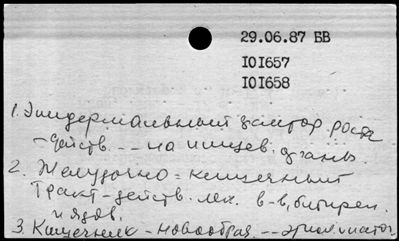 29.06.87 ВВ
I0I657
I0I658
1. Эпидермальный фактор роста
- действ. -- на пищев. органы.
2. Желудочно = кишечный
тракт - действ. лек. в-в,
и ядов.
3. Кишечник - новообраз --